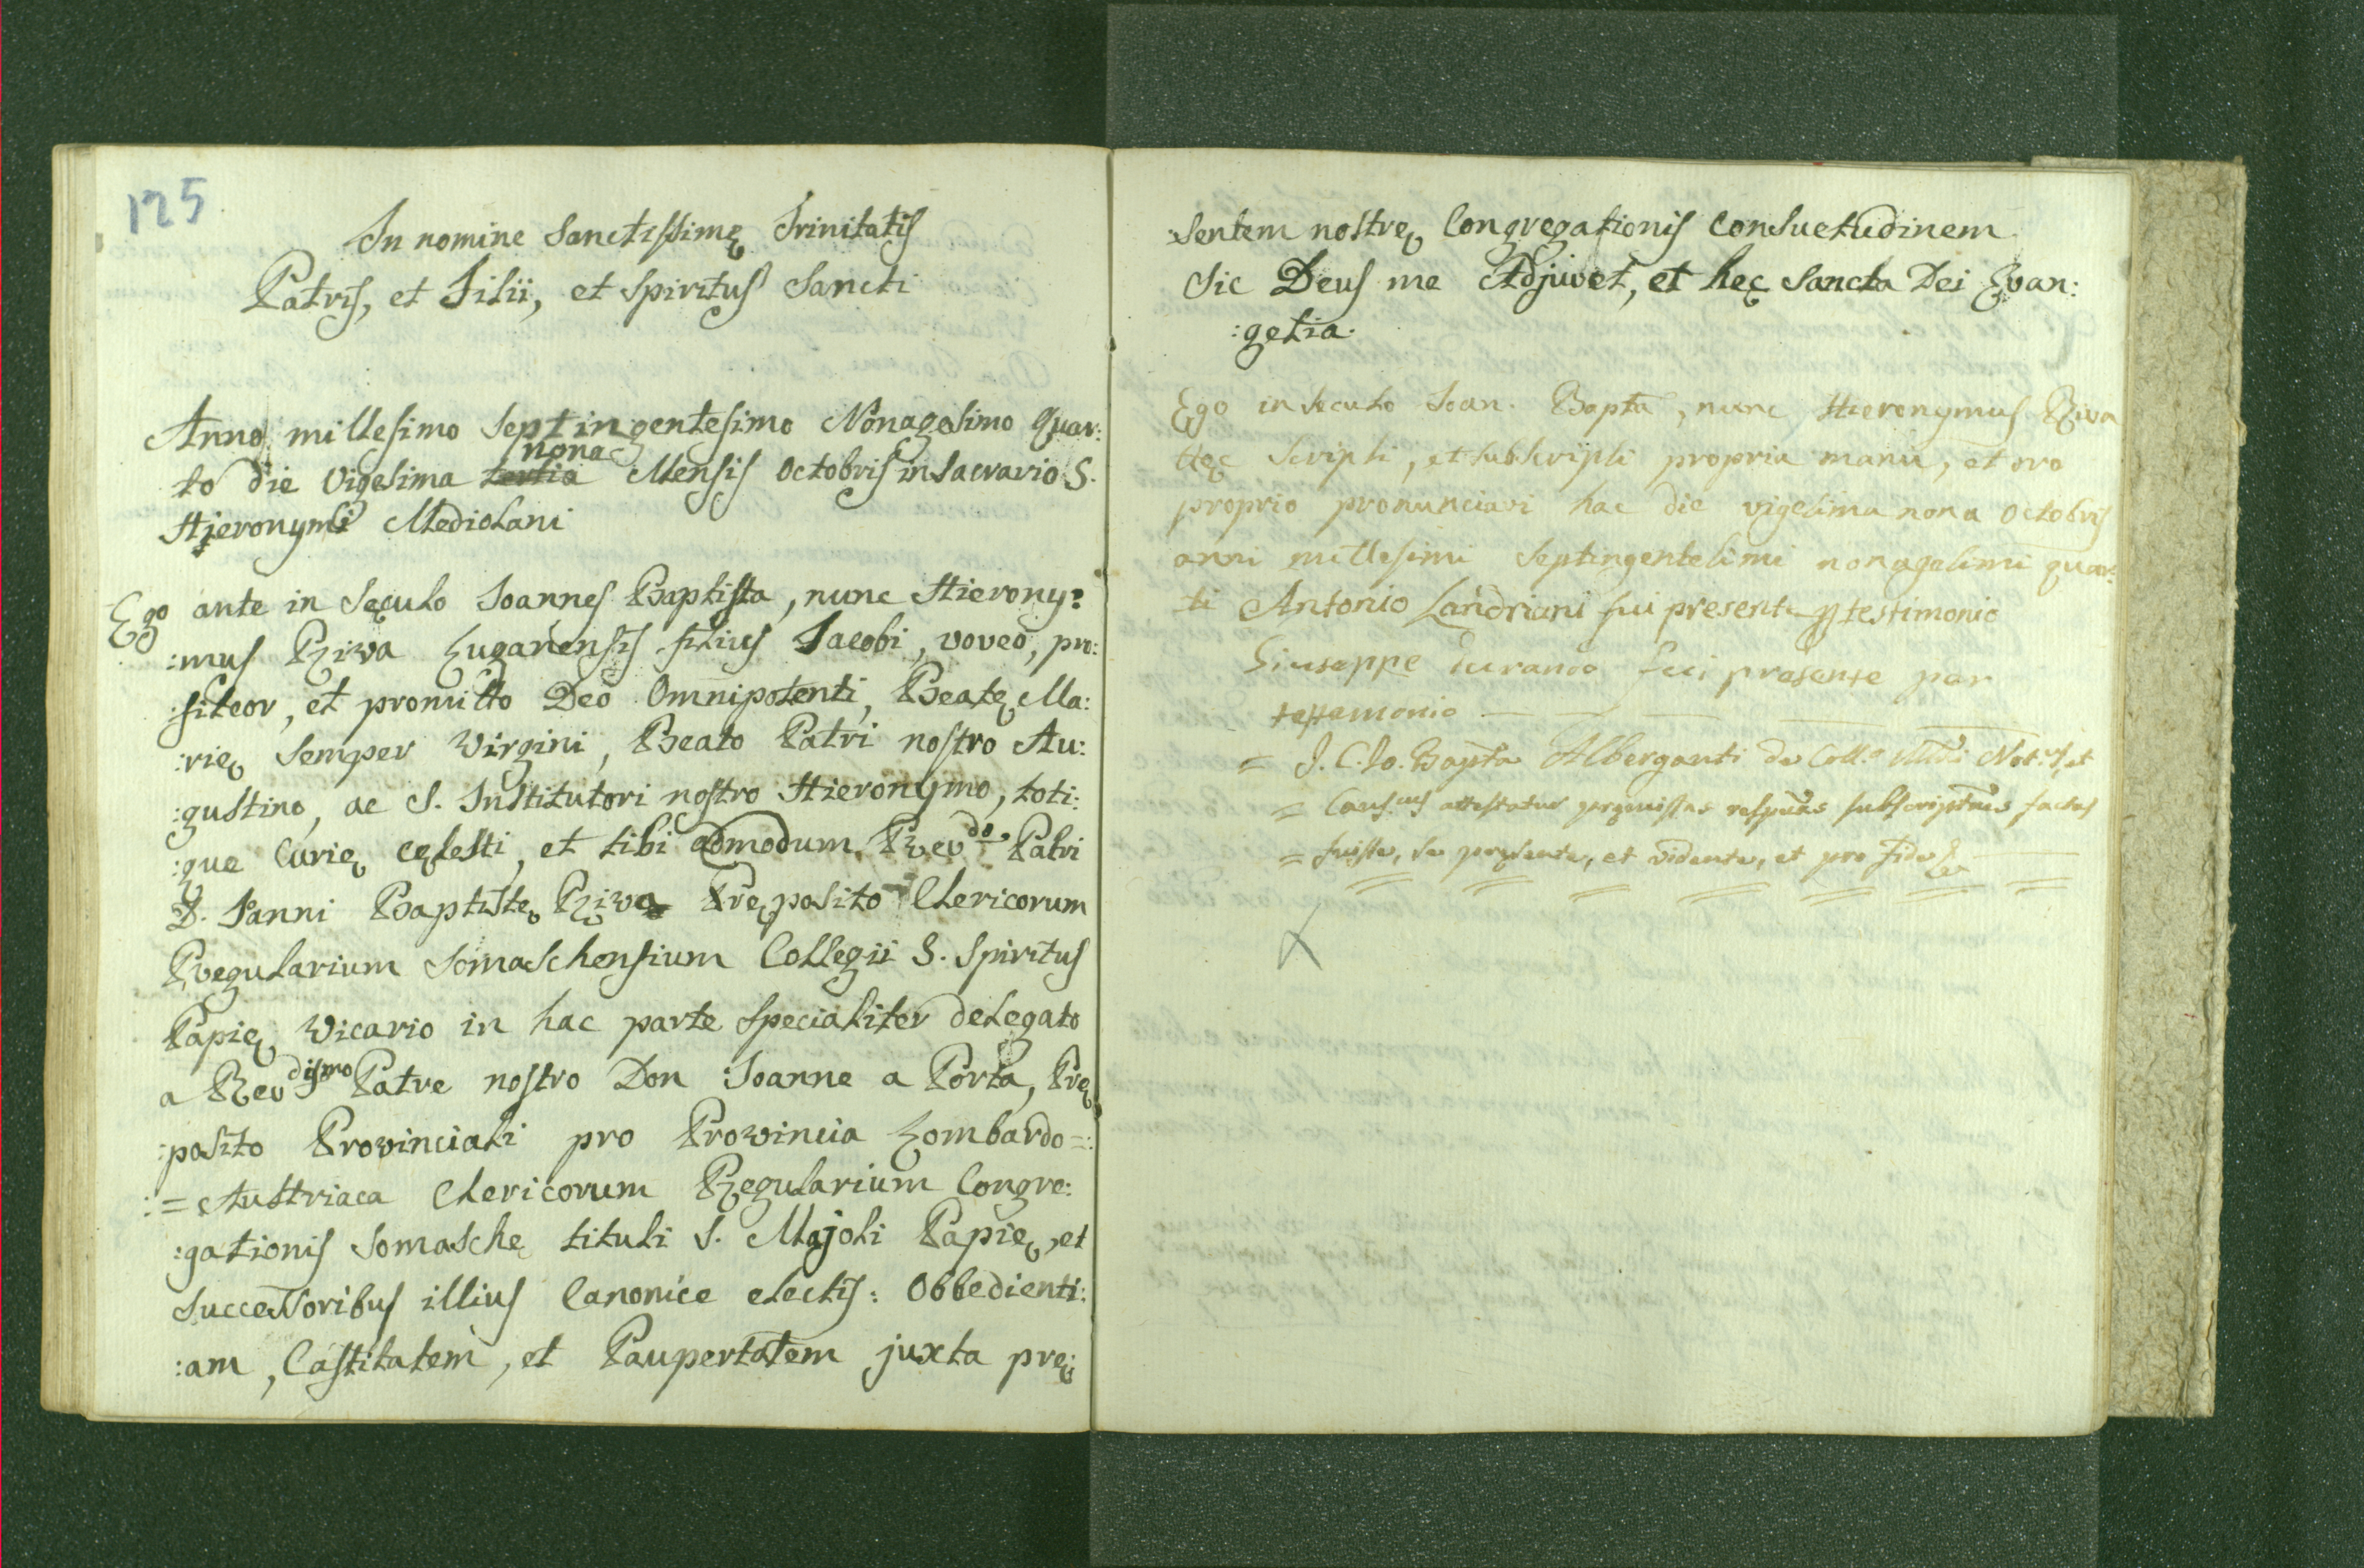 125
In nomine Sanctissimę Trinitatis
Patris, et Filii, et Spiritus Sancti
Anno millesimo septingentesimo Nonagesimo Quar:
nona
to die Vigesima tertia Mensis Octobris in Sacrario S.
Hieronymi Mediolani
Ego ante in Sęculo Joannes Baptista, nunc Hierony:
:mus Riva Luganensis filius Jacobi, voveo, pro:
:fiteor, et promitto Deo Omnipotenti, Beatę Ma:
:rię Semper Virgini, Beato Patri nostro Au:
:gustino, ac S. Institutori nostro Hieronymo, toti:
:que Curię cęlesti, et tibi admodum Revdo. Patri
D. Joanni Baptistę Riva Pręposito Clericorum
Regularium Somaschensium Collegii S. Spiritus
Papię Vicario in hac parte specialiter delegato
a Revdismo Patre nostro Don Joanne a Porta, Prę
:posito Provinciali pro Provincia Lombardo=:
:=Austriaca Clericorum Regularium Congre:
:gationis Somaschę tituli S. Majoli Papię, et
Successoribus illius Canonice electis: Obbedienti:
:am, Castitatem, et Paupertatem juxta prę:
sentem nostrę Congregationis Consuetudinem
Sic Deus me Adjuvet, et hęc Sancta Dei Evan:
:gelia.
Ego in Seculo Joan. Bapta, nunc Hieronymus Riva
hęc Scripsi, et subscripsi propria manu, et oro
proprio pronunciavi hac die vigesima nona Octobris
anni millesimi Septingentesimi nonagesimi quar:
ti Antonio Landriani fui presente p testimonio
Giuseppe durando fui presente per
testemonio
= J. C. Jo. Bapta Alberganti de Coll.o Medni Not.us, et
= Caus.cus attestatur pręmissas respvas subscriptnes factas
= fuisse, se pręsente, et vidente, et pro fide